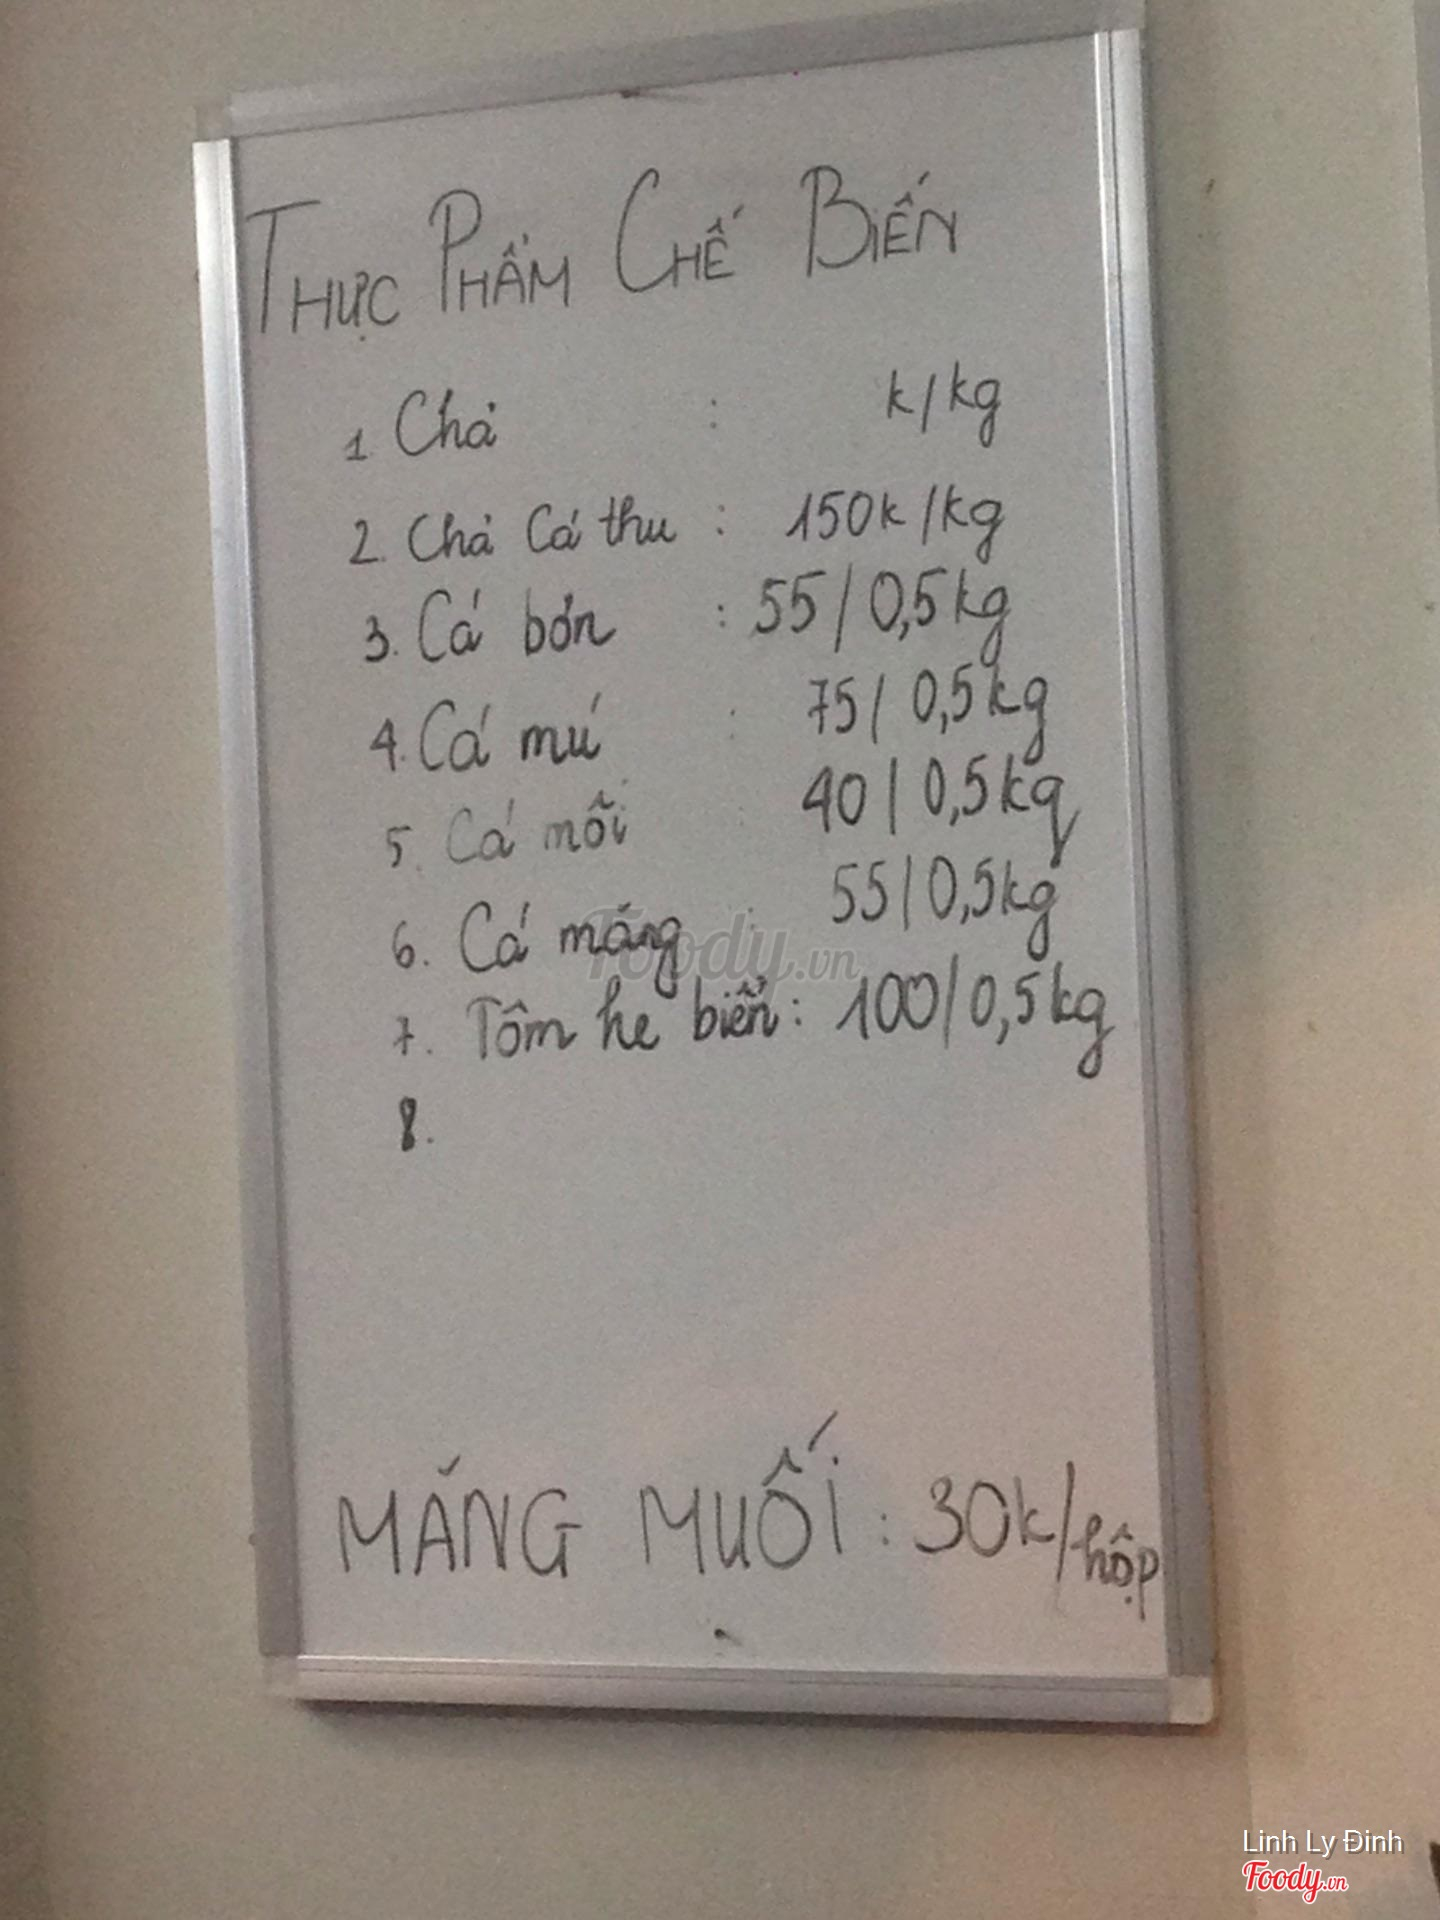 THỰC PHẨM CHẾ BIẾN
1. Chả : k/kg
2. Chả Cá thu : 150k/kg
3. Cá bơn : 55/0,5kg
4. Cá mú : 75/0,5kg
5. Cá mối : 40/0,5kg
6. Cá măng : 55/0,5kg
Foody.vn
7. Tôm he biển : 100/0,5kg
8.
MĂNG MUỐI : 30k/hộp
Linh Ly Đinh
Foody.vn